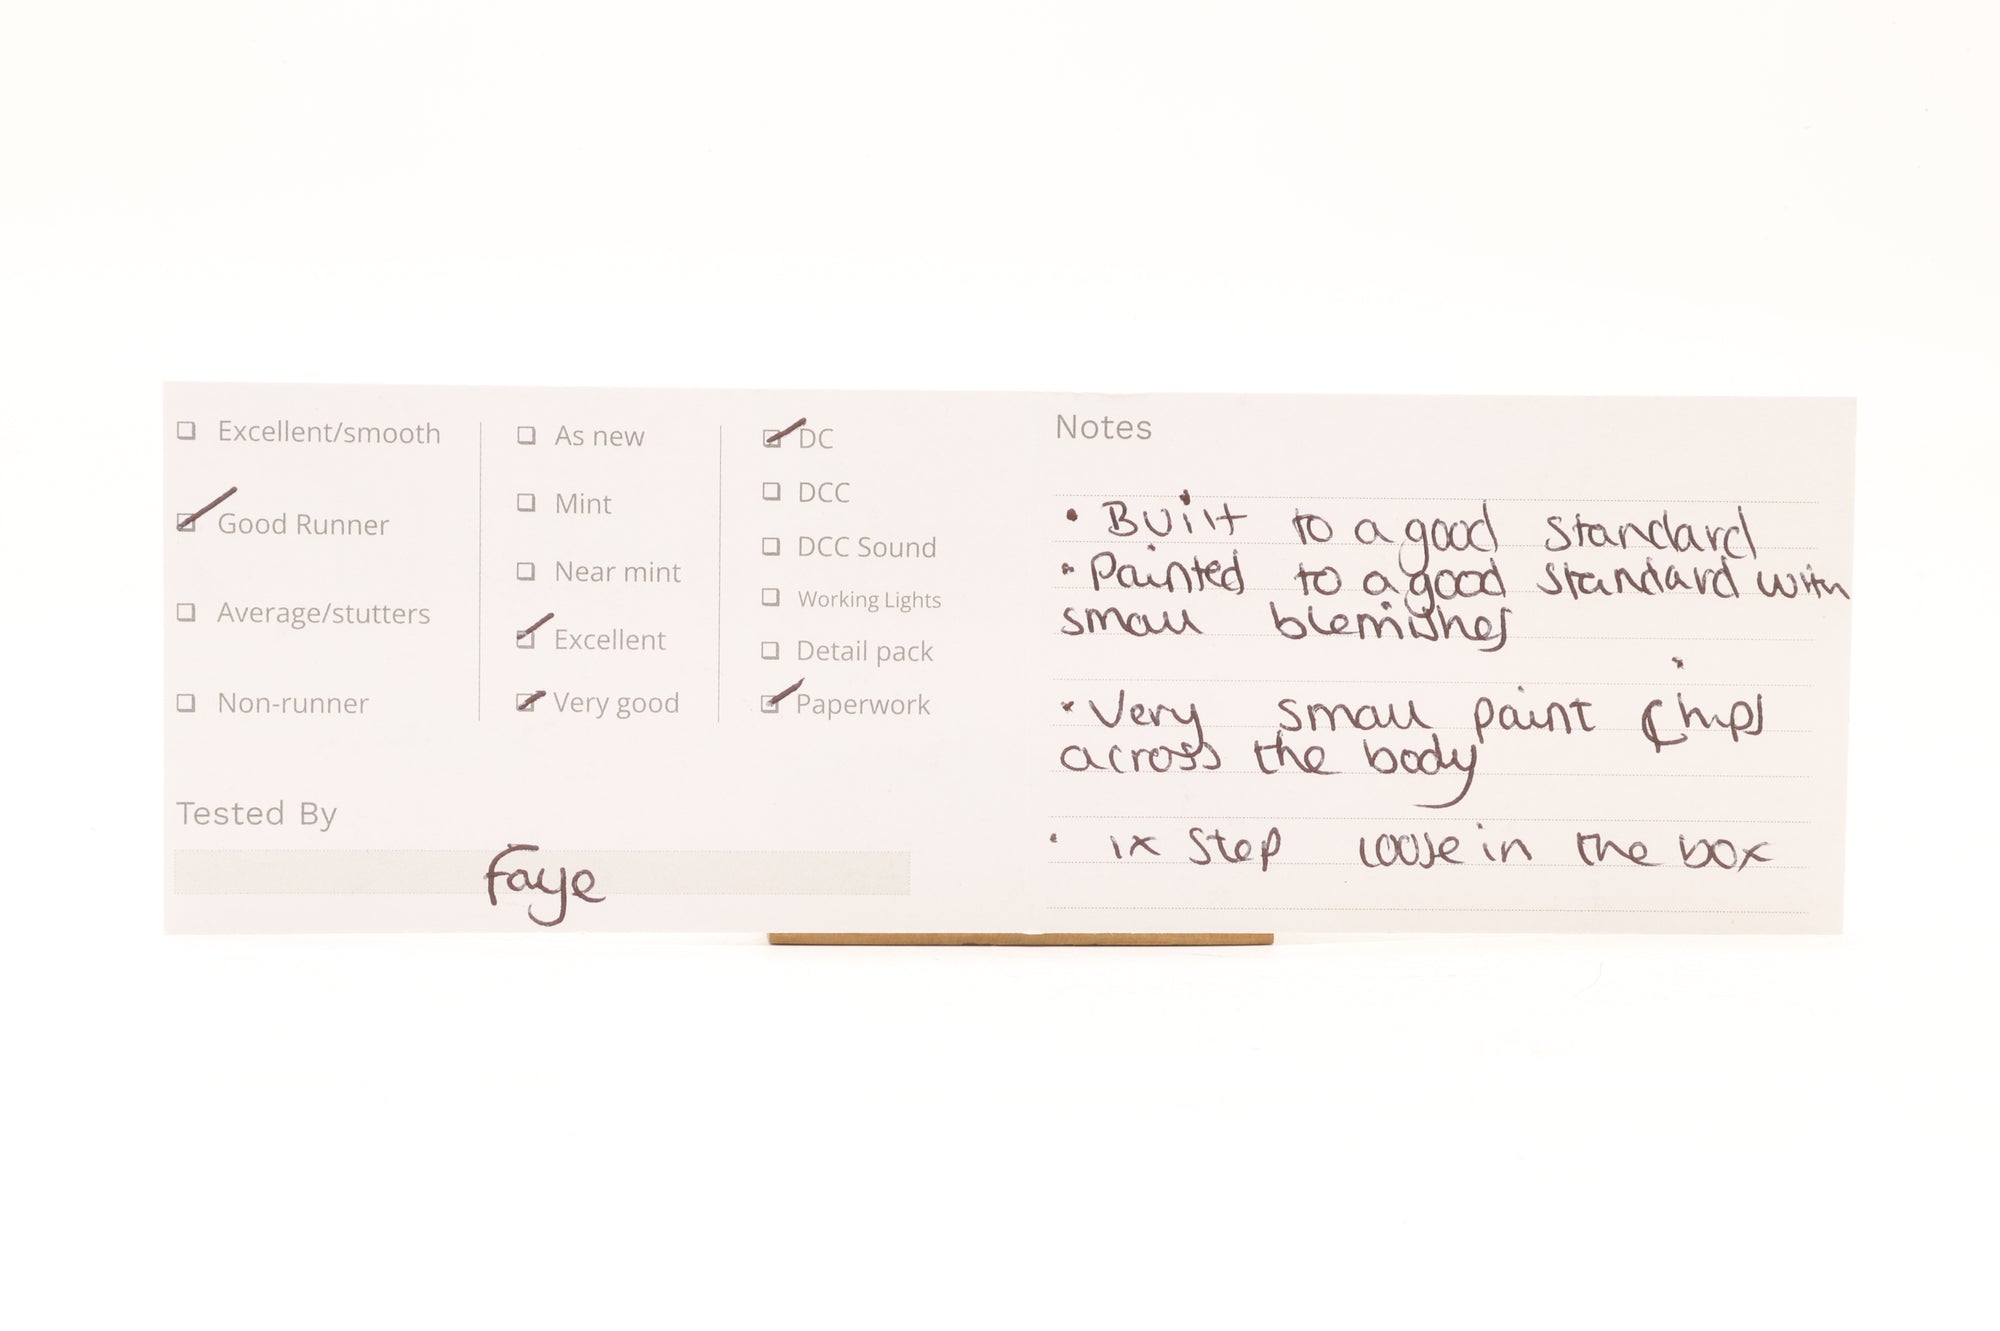 Excellent/smooth
Good Runner
Average/stutters
Non-runner
As new
Mint
Near mint
Excellent
Very good
DC
DCC
DCC Sound
Working Lights
Detail pack
Paperwork
Tested By
Faye
Notes
• Built to a good standard
• Painted to a good standard with
small blemishes
• Very small paint chips
across the body
• 1x step loose in the box